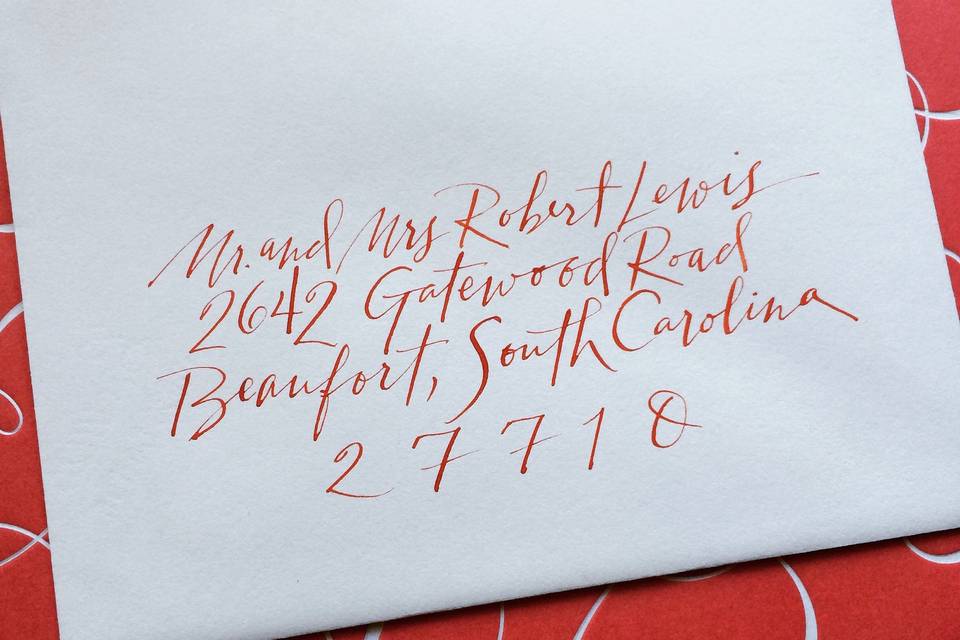 Mr. and Mrs Robert Lewis
2642 Gatewood Road
Beaufort, South Carolina
27710